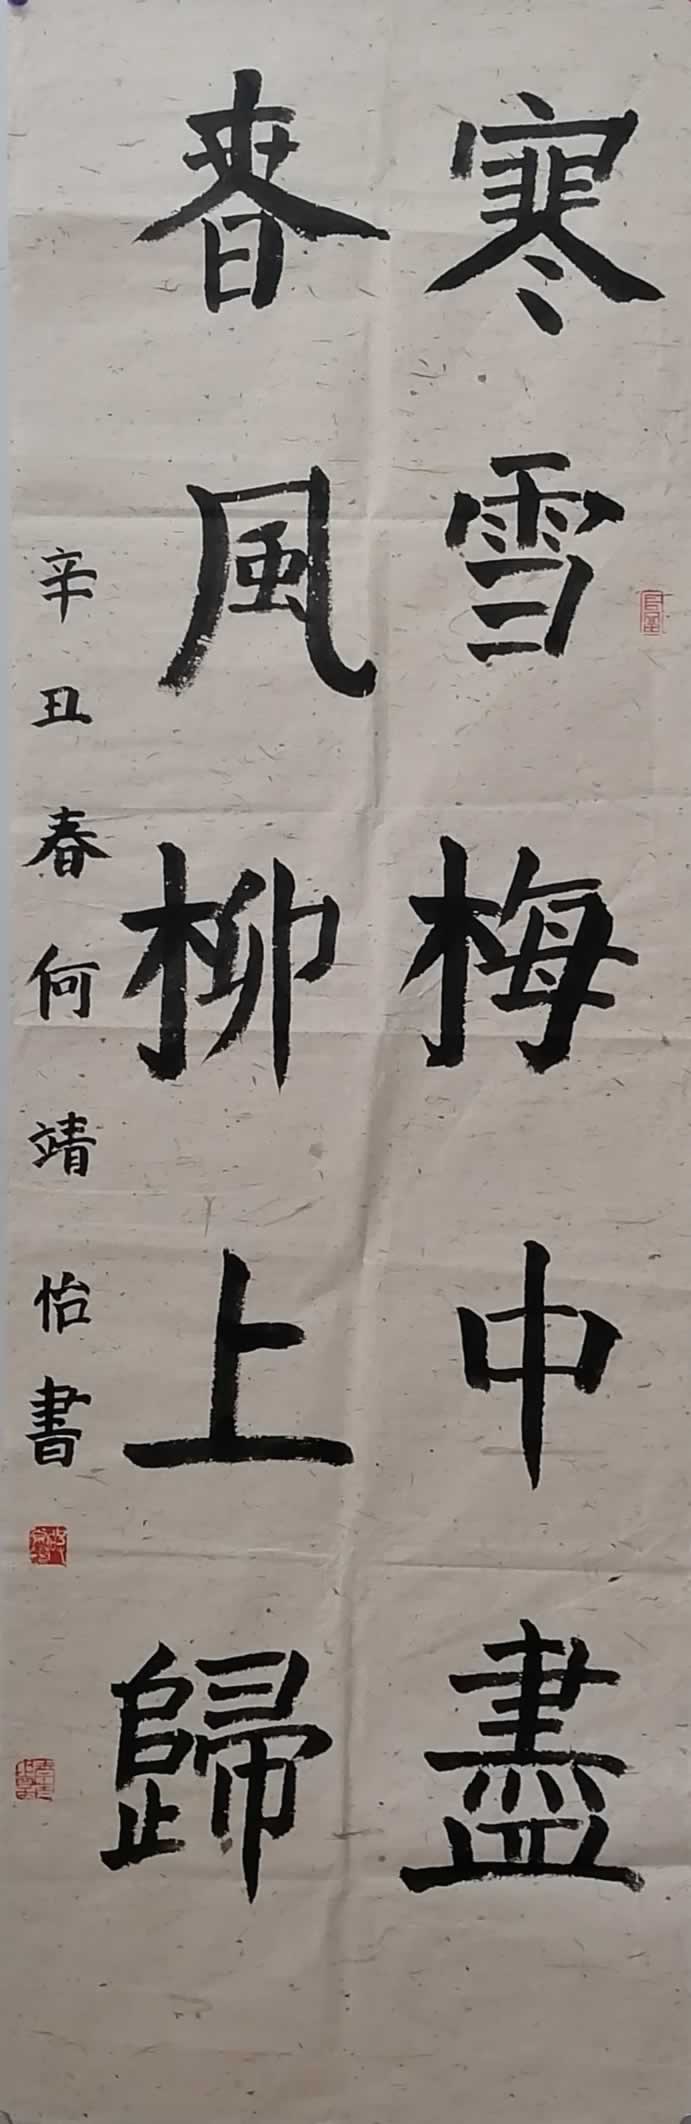 寒雪梅中盡
春風柳上歸
辛丑春何靖怡書